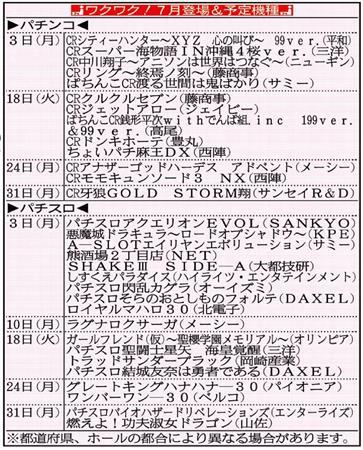 ワクワク！７月登場＆予定機種
▶パチンコ◀
３日(月)
CRシティーハンター～XYZ 心の叫び～ 99ver.(平和)
CRスーパー海物語IN沖縄４桜ver.(三洋)
CR中川翔子～アニソンは世界はつなぐ～(ニューギン)
CRリング～終焉ノ刻～(藤商事)
ぱちんこCR渡る世間は鬼ばかり(サミー)
18日(火)
CRクルクルセブン(藤商事)
CRジェットアロー(ジェイビー)
ぱちんこCR銭形平次withでんぱ組.inc 199ver.
＆99ver.(高尾)
CRドンキホーテ(豊丸)
ちょいパチ麻王DX(西陣)
24日(月)
CRアナザーゴッドハーデス アドベント(メーシー)
CRモモキュンソード３ NX(西陣)
31日(月)
CR牙狼GOLD STORM翔(サンセイR＆D)
▶パチスロ◀
３日(月)
パチスロアクエリオンEVOL(SANKYO)
悪魔城ドラキュラ～ロードオブシャドウ～(KPE)
A－SLOTエイリヤンエボリューション(サミー)
熊酒場２丁目店(NET)
SHAKEⅢ SIDE－A(大都技研)
しすくえパラダイス(ハイライツ・エンタテインメント)
パチスロ閃乱カグラ(オーイズミ)
パチスロそらのおとしものフォルテ(DAXEL)
ロイヤルマハロ－30(北電子)
10日(月)
ラグナロクサーガ(メーシー)
18日(火)
ガールフレンド(仮)～聖櫻学園メモリアル～(オリンピア)
パチスロ聖闘士星矢 海皇覚醒(三洋)
トラッドサンダーブラック(岡崎産業)
パチスロ結城友奈は勇者である(DAXEL)
24日(月)
グレートキングハナハナ－30(パイオニア)
ワンバーワン－30(ベルコ)
31日(月)
パチスロバイオハザードリベレーションズ(エンターライズ)
燃えよ！功夫淑女ドラゴン(山佐)
※都道府県、ホールの都合により異なる場合があります。